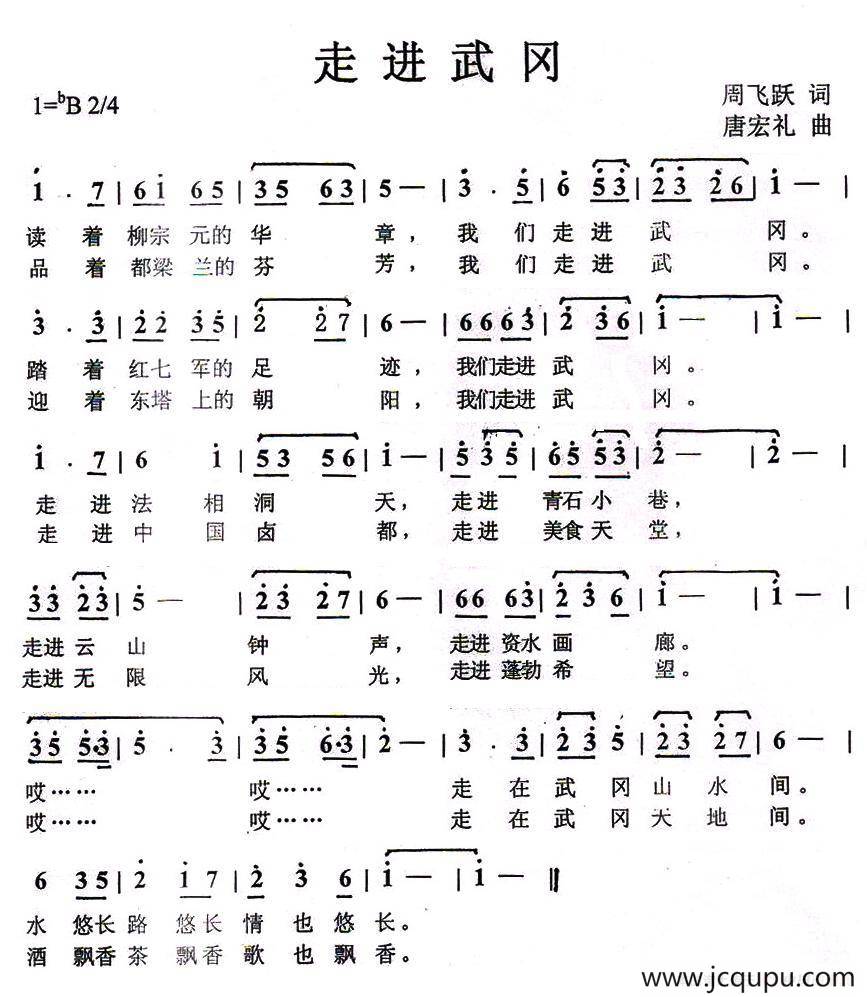 走进武冈
1=ᵇB 2/4
周飞跃 词
唐宏礼 曲
1̇ . 7 | 6 1̇ 6 5 | 3 5 6 3 | 5 — | 3̇ . 5̇ | 6̇ 5̇ 3̇ | 2̇ 3̇ 2̇ 6 | 1̇ — |
读着柳宗元的华章，我们走进武冈。
品着都梁兰的芬芳，我们走进武冈。
3̇ . 3̇ | 2̇ 2̇ 3̇ 5̇ | 2̇ 2̇ 7 | 6 — | 6 6 6 3̇ | 2̇ 3̇ 6 | 1̇ — | 1̇ — |
踏着红七军的足迹，我们走进武冈。
迎着东塔上的朝阳，我们走进武冈。
1̇ . 7 | 6 1̇ | 5̇ 3̇ 5 6 | 1̇ — | 5̇ 3̇ 5̇ | 6̇ 5̇ 5̇ 3̇ | 2̇ — | 2̇ — |
走进法相洞天，走进青石小巷，
走进中国卤都，走进美食天堂，
3̇ 3̇ 2̇ 3̇ | 5̇ — | 2̇ 3̇ 2̇ 7 | 6 — | 6 6 6 3̇ | 2̇ 3̇ 6 | 1̇ — | 1̇ — |
走进云山钟声，走进资水画廊。
走进无限风光，走进蓬勃希望。
3̇ 5̇ 5̇·3̇ | 5̇ . 3̇ | 3̇ 5̇ 6̇·3̇ | 2̇ — | 3̇ . 3̇ | 2̇ 3̇ 5̇ | 2̇ 3̇ 2̇ 7 | 6 — |
哎…… 哎…… 走在武冈山水间。
哎…… 哎…… 走在武冈天地间。
6 3 5 | 2̇ 1̇ 7 | 2̇ 3̇ 6 | 1̇ — | 1̇ — ‖
水悠长路悠长情也悠长。
酒飘香茶飘香歌也飘香。
www.jcqupu.com